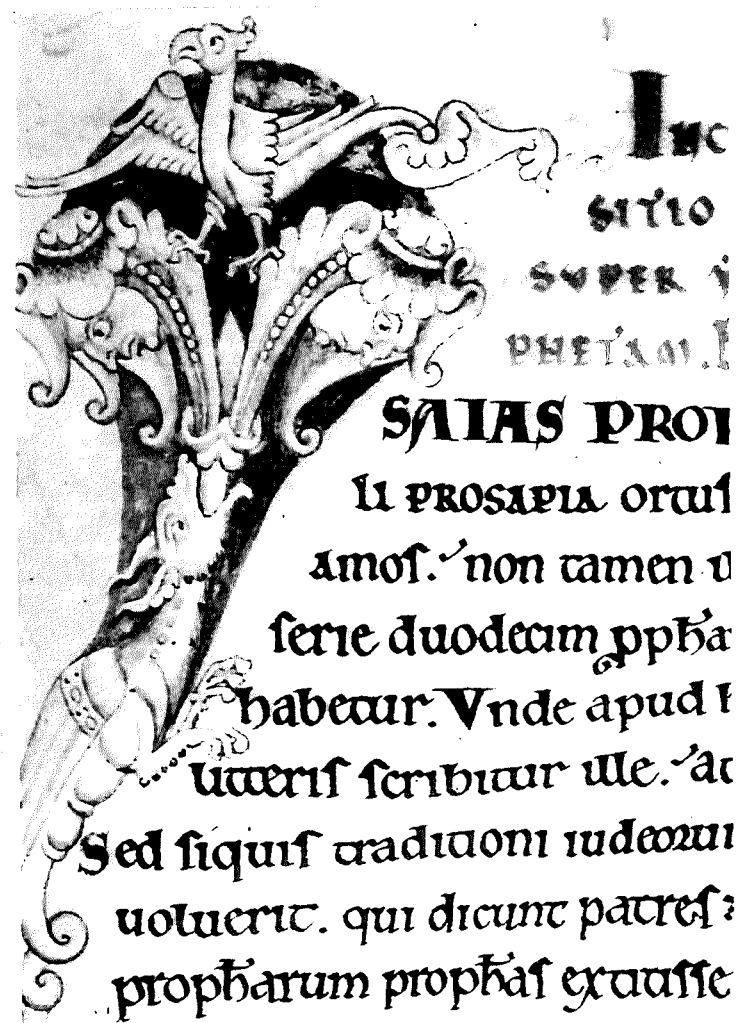 INC
SITIO
SUPER
PHETAM.
SAIAS PRO
LI PROSAPIA ortus
amos. non tamen
serie duodecim ppha
habetur. Vnde apud
utteris scribitur ille. ac
Sed siquis traditioni iudeoru
uoluerit. qui dicunt patres
propharum prophas extitisse